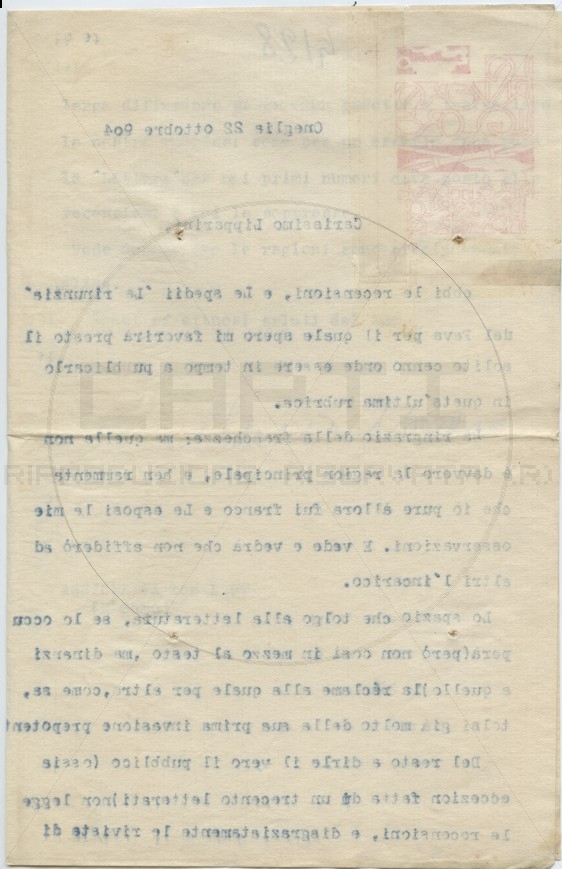 4198
Oneglia 22 ottobre 904
Carissimo Lipparini,
ebbi le recensioni, e Le spedii "La rinunzia"
del Fava per il quale spero mi favorirà presto il
solito cenno onde essere in tempo a pubblicarlo
in quest'ultima rubrica.
La ringrazio della franchezza; ma quella non
è davvero la ragion principale, e ben rammenta
che io pure allora fui franco e Le esposi le mie
osservazioni. E vede e vedrà che non affiderò ad
altri l'incarico.
Lo spazio che tolgo alla letteratura, se lo occu
perà(però non così in mezzo al testo ,ma dinanzi
a quello)la réclame alla quale per altro,come sa,
tolsi già molto della sua prima invasione prepotent
Del resto a dirle il vero il pubblico (ossia
eccezion fatta di un trecento letterati)non legge
le recensioni, e disgraziatamente le riviste di
RIPRODUZIONE RISERVATA